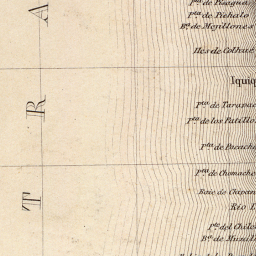 Pta. de Pisagua
Pta. de Pichalo
Be. de Mejillones
Iles de Colhue
Iquiq
Pta. de Tarapac
Pta. de los Patillo
Pta. de Pacach
Pta. de Chomache
Baie de Chipan
Rio L
Pte. del Chile
Be. de Mamill
A
R
T